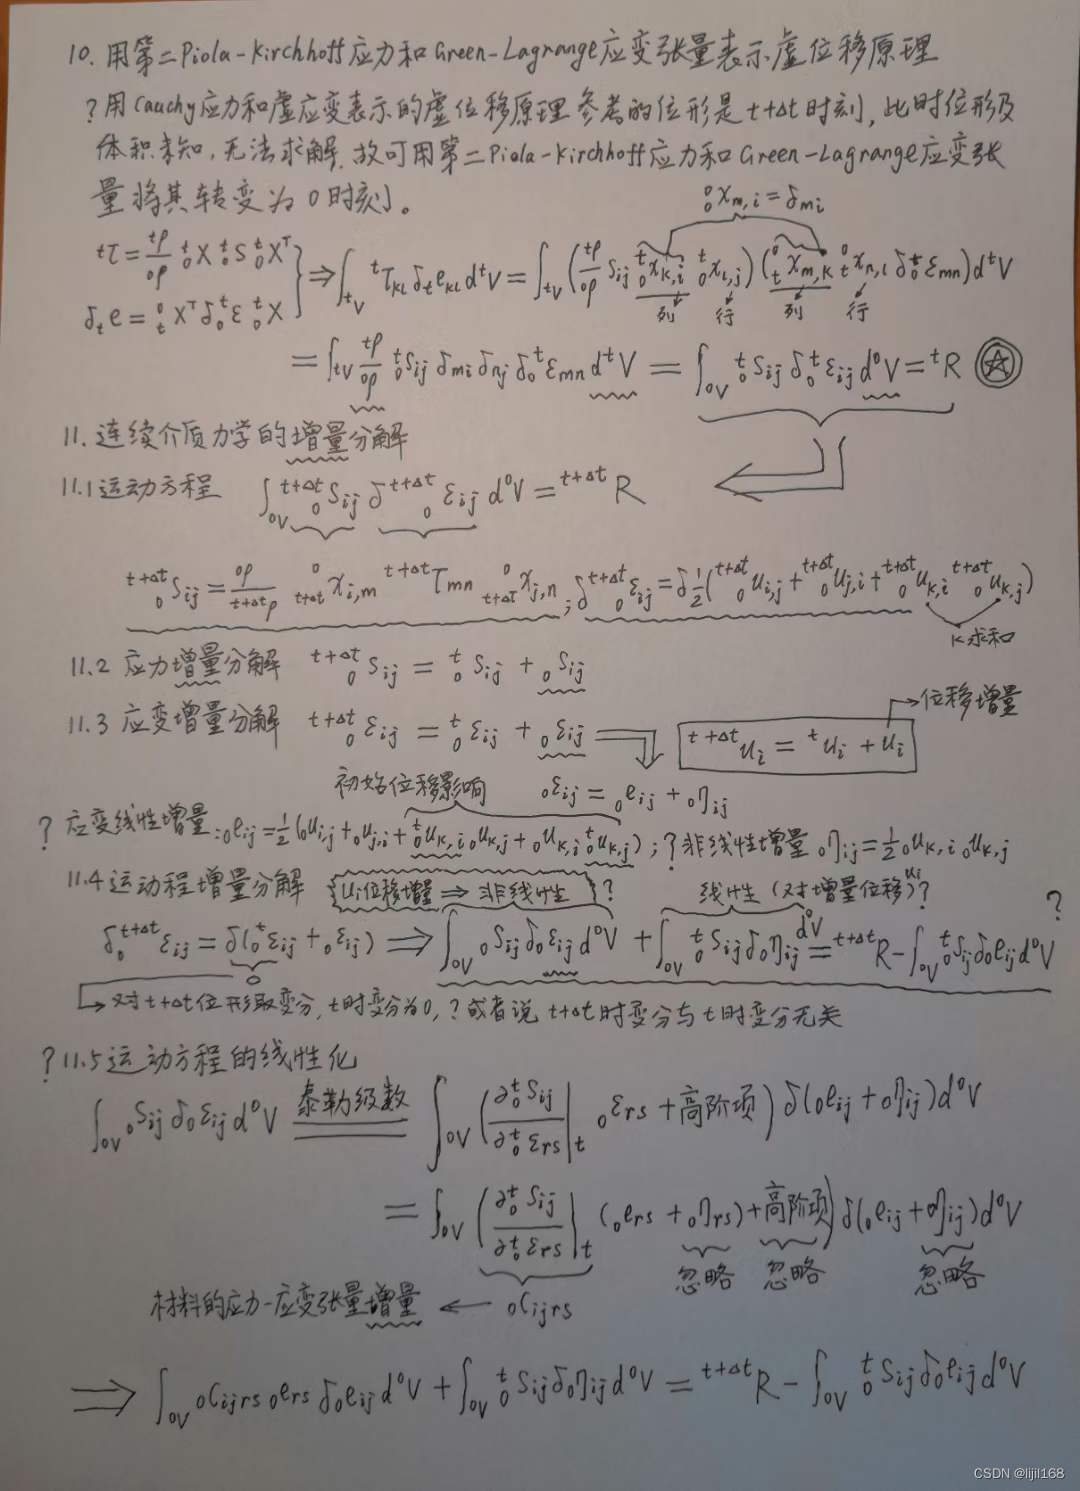 10. 用第二Piola-Kirchhoff应力和Green-Lagrange应变张量表示虚位移原理
?用Cauchy应力和虚应变表示的虚位移原理参考的位形是t+Δt时刻,此时位形及
体积未知,无法求解.故可用第二Piola-Kirchhoff应力和Green-Lagrange应变张
量将其转变为0时刻。
⁰₀x_{m,i} = δ_{mi}
ᵗτ = ᵗρ/⁰ρ ᵗ₀X ᵗ₀S ᵗ₀Xᵀ
δₜe = ⁰ₜXᵀ δᵗ₀ε ᵗ₀X
⇒ ∫_{ᵗV} ᵗτ_{kl} δₜe_{kl} dᵗV = ∫_{ᵗV} (ᵗρ/⁰ρ S_{ij} ᵗ₀x_{k,i} ᵗ₀x_{l,j}) (⁰ₜx_{m,k} ⁰ₜx_{n,l} δᵗ₀ε_{mn}) dᵗV
列 行 列 行
= ∫_{ᵗV} ᵗρ/⁰ρ ᵗ₀S_{ij} δ_{mi} δ_{nj} δᵗ₀ε_{mn} dᵗV = ∫_{⁰V} ᵗ₀S_{ij} δᵗ₀ε_{ij} d⁰V = ᵗR ☆
11. 连续介质力学的增量分解
11.1 运动方程 ∫_{⁰V} ᵗ⁺ᐃᵗ₀S_{ij} δᵗ⁺ᐃᵗ₀ε_{ij} d⁰V = ᵗ⁺ᐃᵗR
ᵗ⁺ᐃᵗ₀S_{ij} = ⁰ρ/ᵗ⁺ᐃᵗρ ⁰ₜ₊ᐃₜx_{i,m} ᵗ⁺ᐃᵗτ_{mn} ⁰ₜ₊ᐃₜx_{j,n} ; δᵗ⁺ᐃᵗ₀ε_{ij} = δ½(ᵗ⁺ᐃᵗ₀u_{i,j} + ᵗ⁺ᐃᵗ₀u_{j,i} + ᵗ⁺ᐃᵗ₀u_{k,i} ᵗ⁺ᐃᵗ₀u_{k,j})
K求和
11.2 应力增量分解 ᵗ⁺ᐃᵗ₀S_{ij} = ᵗ₀S_{ij} + ₀S_{ij}
11.3 应变增量分解 ᵗ⁺ᐃᵗ₀ε_{ij} = ᵗ₀ε_{ij} + ₀ε_{ij} ᵗ⁺ᐃᵗu_i = ᵗu_i + u_i → 位移增量
初始位移影响 ₀ε_{ij} = ₀e_{ij} + ₀η_{ij}
? 应变线性增量:₀e_{ij} = ½(₀u_{i,j} + ₀u_{j,i} + ᵗ₀u_{k,i} ₀u_{k,j} + ₀u_{k,i} ᵗ₀u_{k,j}) ; ?非线性增量 ₀η_{ij} = ½ ₀u_{k,i} ₀u_{k,j}
11.4 运动程增量分解 u_i位移增量 ⇒ 非线性 ? 线性(对增量位移u_i)? ?
δᵗ⁺ᐃᵗ₀ε_{ij} = δ(ᵗ₀ε_{ij} + ₀ε_{ij}) ⇒ ∫_{⁰V} ₀S_{ij} δ₀ε_{ij} d⁰V + ∫_{⁰V} ᵗ₀S_{ij} δ₀η_{ij} d⁰V = ᵗ⁺ᐃᵗR - ∫_{⁰V} ᵗ₀S_{ij} δ₀e_{ij} d⁰V
0
→ 对t+Δt位形取变分,t时变分为0,?或者说 t+Δt时变分与t时变分无关
? 11.5 运动方程的线性化
∫_{⁰V} ₀S_{ij} δ₀ε_{ij} d⁰V =泰勒级数= ∫_{⁰V} (∂ᵗ₀S_{ij}/∂ᵗ₀ε_{rs}|ₜ ₀ε_{rs} + 高阶项) δ(₀e_{ij} + ₀η_{ij}) d⁰V
= ∫_{⁰V} (∂ᵗ₀S_{ij}/∂ᵗ₀ε_{rs}|ₜ (₀e_{rs} + ₀η_{rs}) + 高阶项) δ(₀e_{ij} + ₀η_{ij}) d⁰V
忽略 忽略 忽略
材料的应力-应变张量增量 ← ₀C_{ijrs}
⇒ ∫_{⁰V} ₀C_{ijrs} ₀e_{rs} δ₀e_{ij} d⁰V + ∫_{⁰V} ᵗ₀S_{ij} δ₀η_{ij} d⁰V = ᵗ⁺ᐃᵗR - ∫_{⁰V} ᵗ₀S_{ij} δ₀e_{ij} d⁰V
CSDN @lijil168